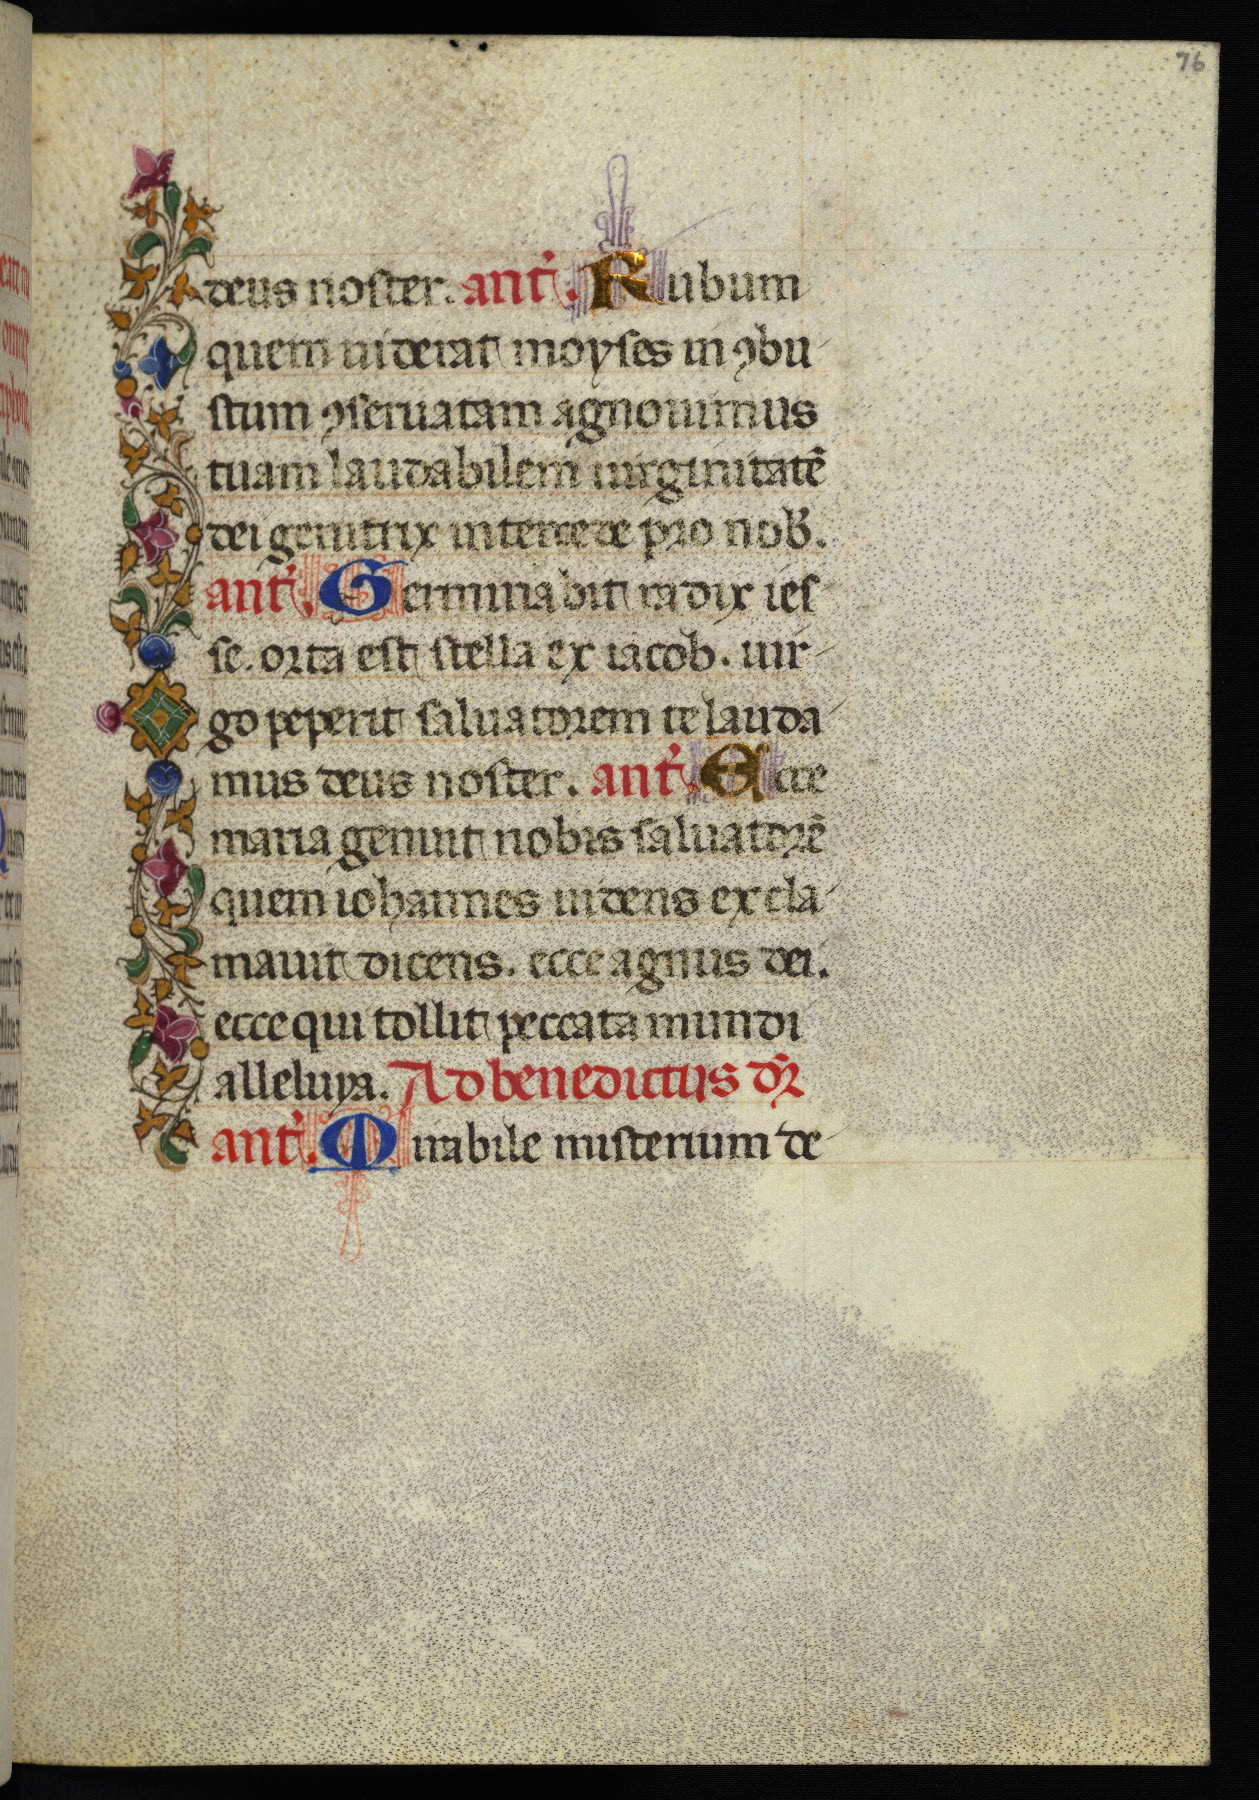 76
deus noster. ant̃. Rubum
quem uiderat moyses in ꝯbu
stum ꝯseruatam agnouimus
tuam laudabilem uirginitatẽ
dei genitrix intercede pro nob̃.
ant̃. Germinabit radix ies
se. orta est stella ex iacob. uir
go peperit saluatorem te lauda
mus deus noster. ant̃. Ecce
maria genuit nobis saluatorẽ
quem iohannes uidens excla
mauit dicens. ecce agnus dei.
ecce qui tollit peccata mundi
alleluya. Ad benedictus dr̃
ant̃. Mirabile misterium de